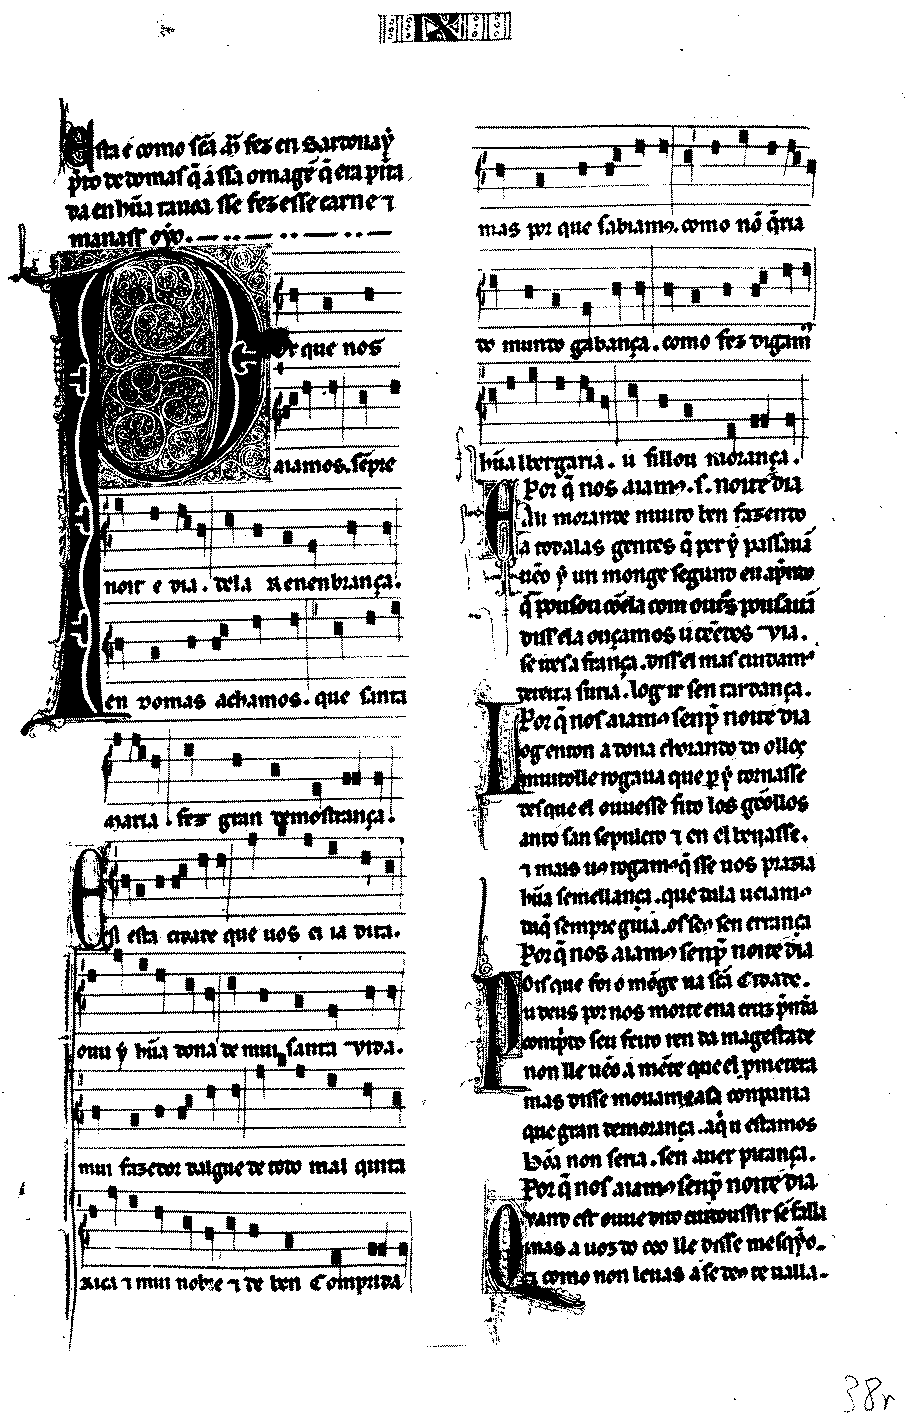 IX
Esta é como sc̃a m̃ fez en Sardonaỹ
p̃to de domas q̃ a ssa omagẽ q̃ era pĩta
da en hũa tauoa sse fezesse carne ⁊
manass oyo.
Por que nos
aiamos. sẽpre
noit e dia. dela Renenbrança.
en domas achamos. que santa
maria. fez gran demostrança.
En esta cidade que uos ei ia dita.
ouu ỹ hũa dona de mui santa vida.
mui fazedor dalgue de todo mal quita
Rica ⁊ mui nobre ⁊ de ben Comprida
mas por que sabiamos. como nõ q̃ria
do mundo gabança. como fez digam̃
hũa lbergaria. u fillou morança.
Por q̃ nos aiamos. s. noite dia
A lu morando muito ben fazendo
a todalas gentes q̃ per ỹ passauã
uẽo ỹ un monge segund en aprẽdo
q̃ pousou cõela com outros pousauã
diss ela ouçamos u tẽedes via.
se ides a frança. diss el mas cuidamos
dereita suria. log ir sen tardança.
Por q̃ nos aiamos senp̃ noite dia
Log enton a dona chorando dos ollos
muitolle rogaua que p ỹ tornasse
desque el ouuesse fito los gẽollos
anto san sepulcro ⁊ en el beyiasse.
⁊ mais uos rogamos q̃ sse uos prazia
hũa semellança. que dala ueiamos
duq̃ sempre guia. os seus sen errança
Por q̃ nos aiamos senp̃ noite dia
Pois que foi o mõge na sc̃a Cidade.
u deus por nos morte ena cruz p̃ndia
comprido seu feito ren da magestade
non lle uẽo a mẽte que el pmetera
mas disse mouamos a ssa conpania
que gran demorança. aq̃ u estamos
bõa non seria. sen auer pitança.
Por q̃ nos aiamos senp̃ noite dia
Quand est ouue dito
mas a uoz do ceo lle disse mesq̃o.
e como non leuas a se deus te ualla.
38r